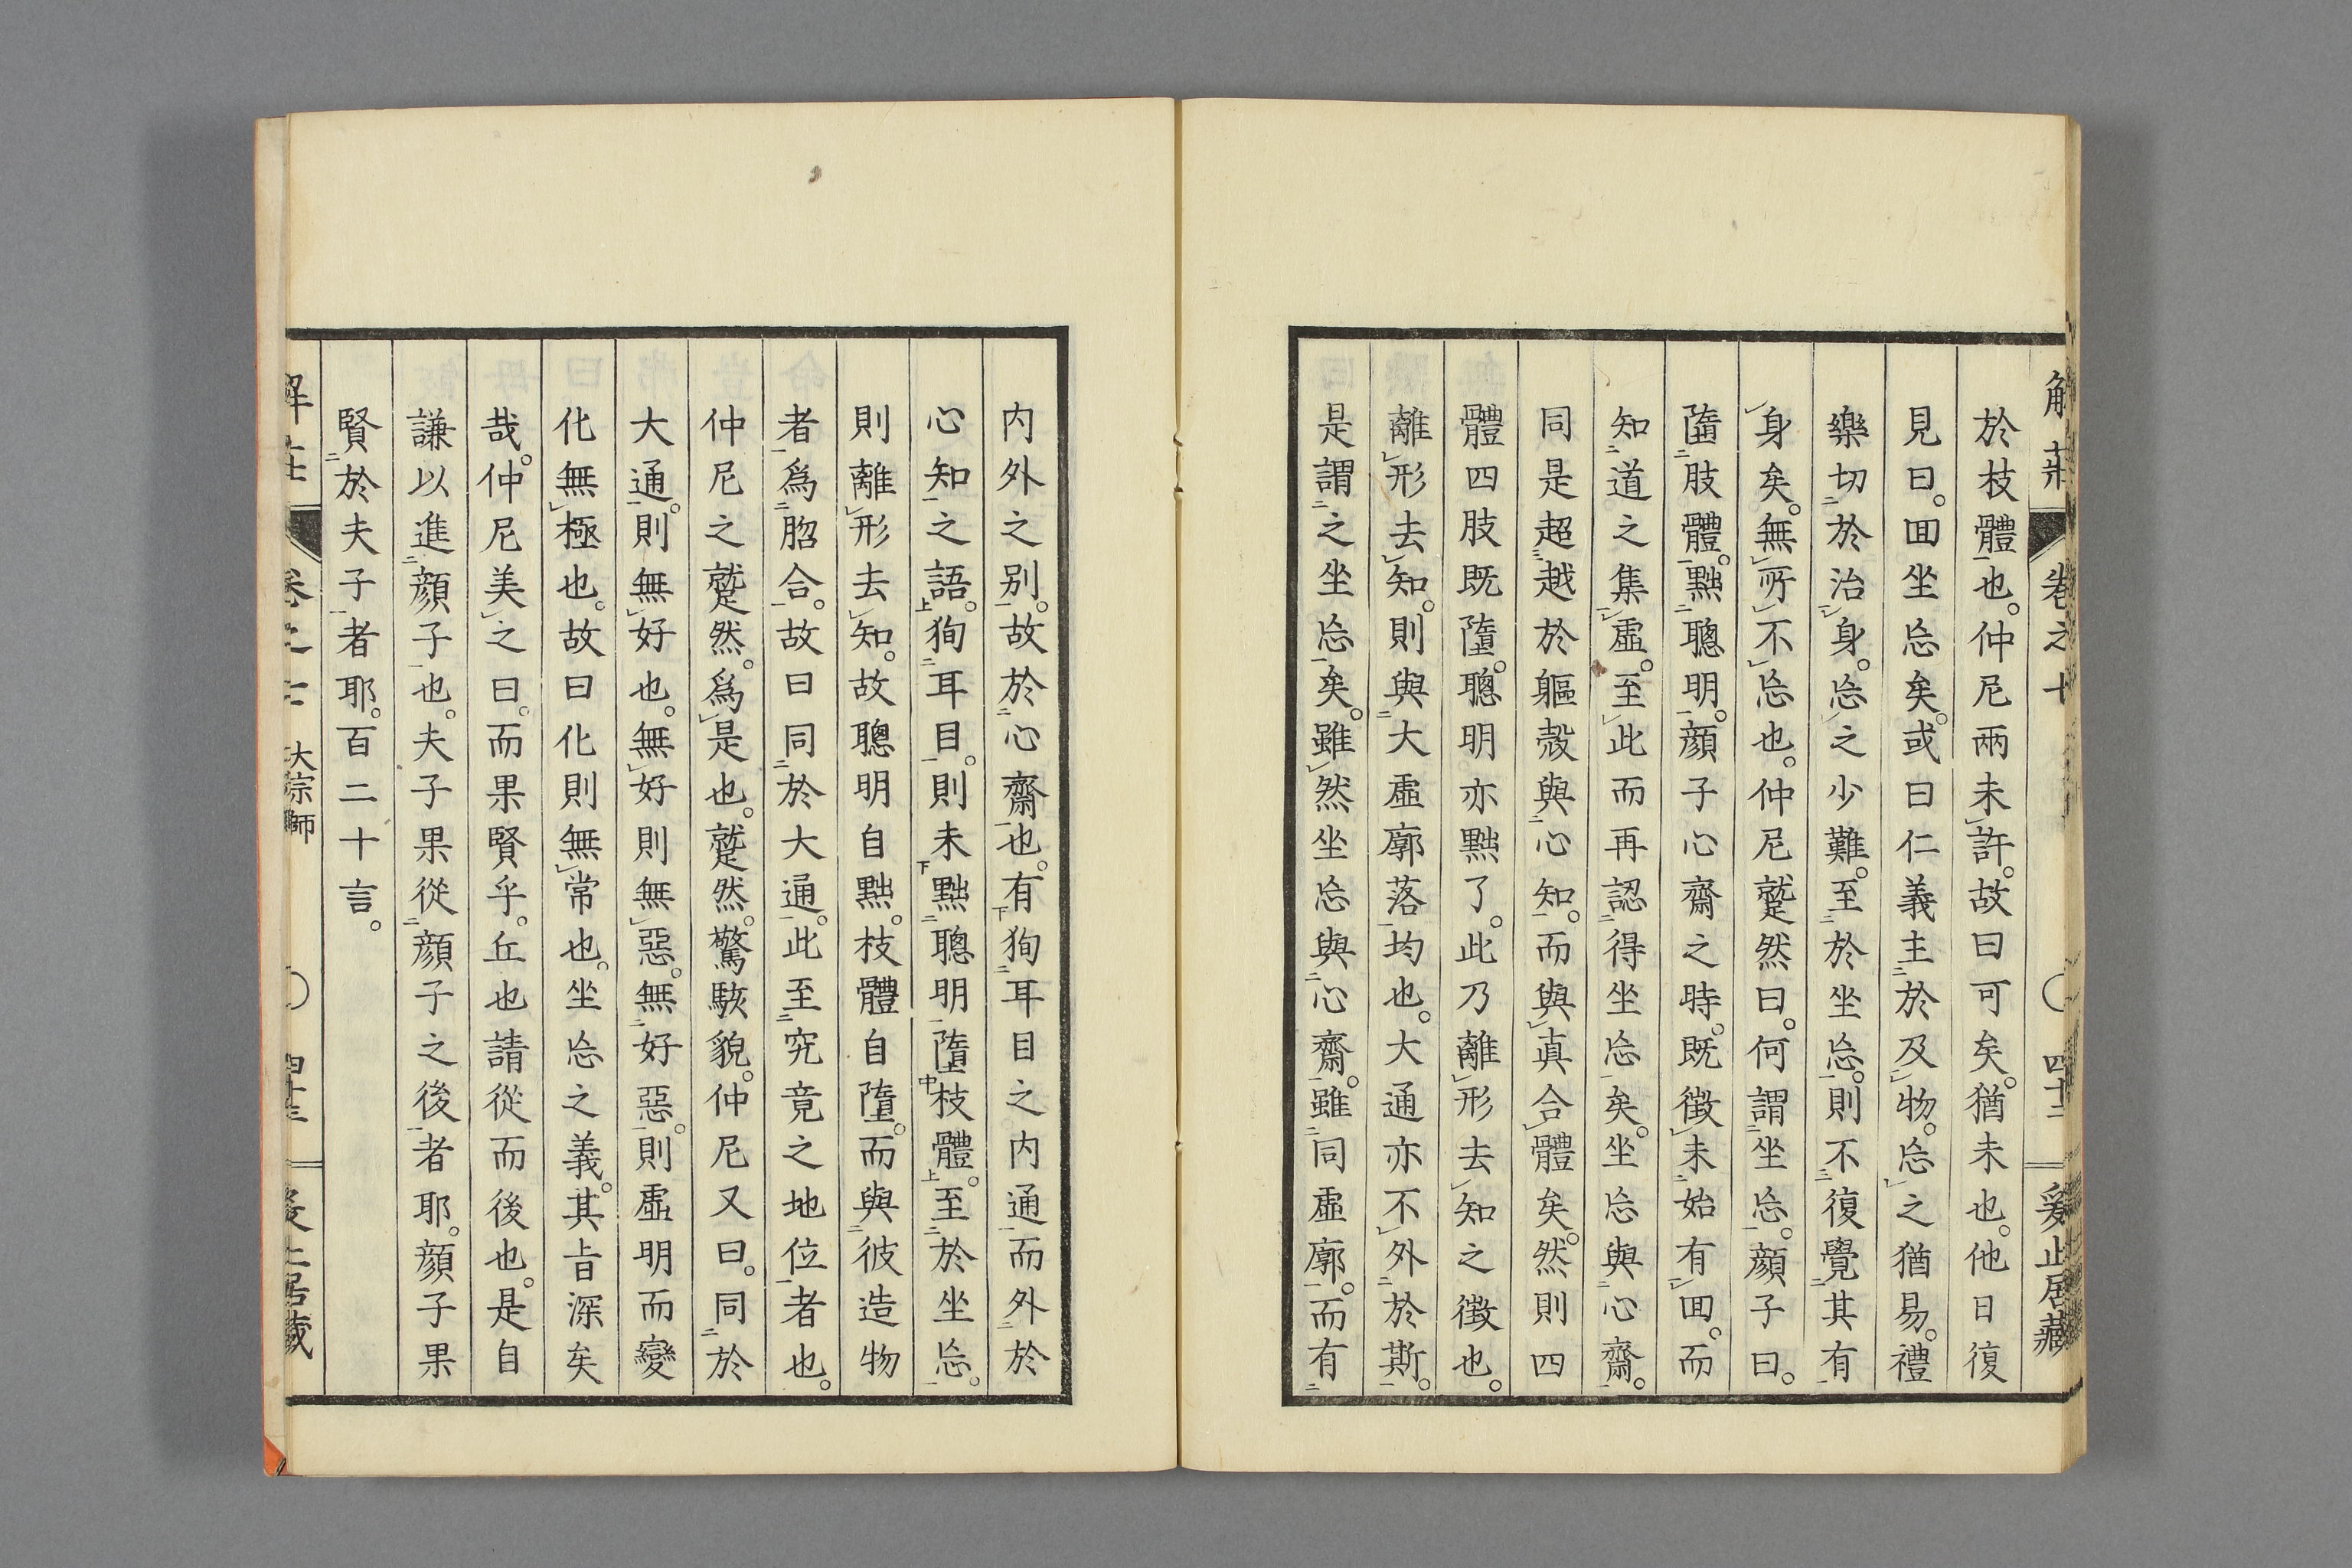 解莊 卷之十 四十二 爰止居藏
於枝體也。仲尼兩未許。故曰可矣。猶未也。他日復
見曰。囬坐忘矣。或曰仁義主於及物。忘之猶易。禮
樂切於治身。忘之少難。至於坐忘。則不復覺其有
身矣。無所不忘也。仲尼蹵然曰。何謂坐忘。顔子曰。
墮肢體。黜聰明。顔子心齋之時。既徵未始有囬。而
知道之集虛。至此而再認得坐忘矣。坐忘與心齋。
同是超越於軀殼與心知。而與真合體矣。然則四
體四肢既墮。聰明亦黜了。此乃離形去知之徵也。
離形去知。則與大虛廓落均也。大通亦不外於斯。
是謂之坐忘矣。雖然坐忘與心齋。雖同虛廓。而有
内外之别。故於心齋也。有狥耳目之内通而外於
心知之語。狥耳目。則未黜聰明墮枝體。至於坐忘。
則離形去知。故聰明自黜。枝體自墮。而與彼造物
者爲脗合。故曰同於大通。此至究竟之地位者也。
仲尼之蹵然。爲是也。蹵然。驚駭貌。仲尼又曰。同於
大通。則無好也。無好則無惡。無好惡。則虛明而變
化無極也。故曰化則無常也。坐忘之義。其旨深矣
哉。仲尼美之曰。而果賢乎。丘也請從而後也。是自
謙以進顔子也。夫子果從顔子之後者耶。顔子果
賢於夫子者耶。百二十言。
解莊 大宗師 四十三